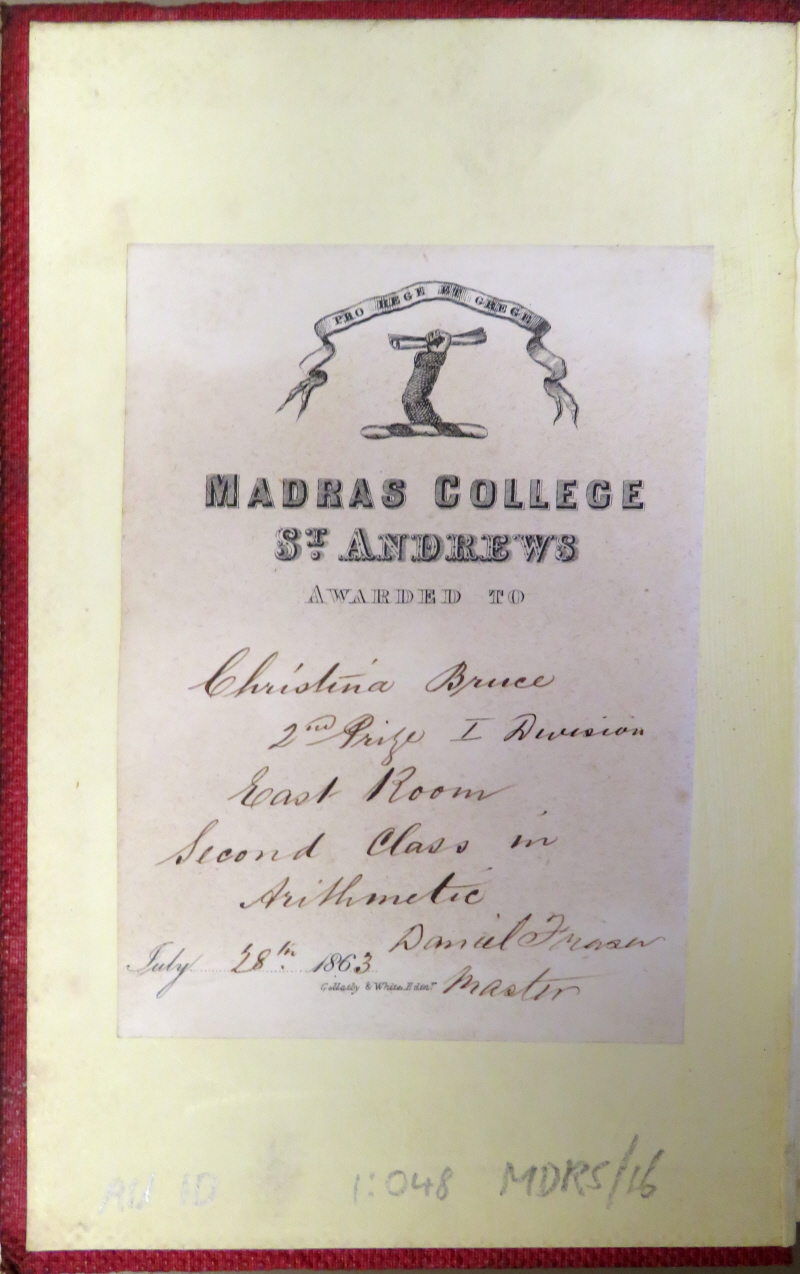 PRO REGE ET GREGE
MADRAS COLLEGE
ST. ANDREWS
AWARDED TO
Christina Bruce
2nd Prize I Division
East Room
Second Class in
Arithmetic
Daniel Fraser
July 28th. 1863
Master
Gellatly & White Edinr.
1:048 MDRS/16